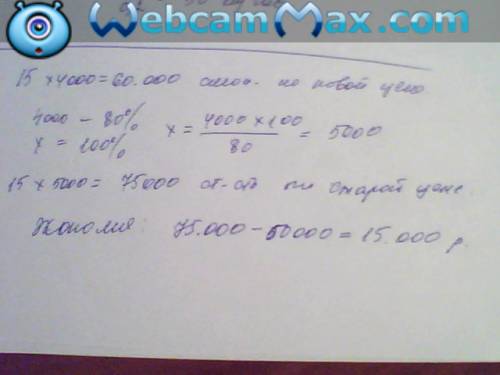 WebcamMax.com
15 x 4000 = 60.000 стои- по новой цене
4000 – 80%
x = 100%
x = 4000 x 100 / 80 = 5000
15 x 5000 = 75000 ст-сть по старой цене.
Экономия: 75.000 – 50000 = 15.000 р.